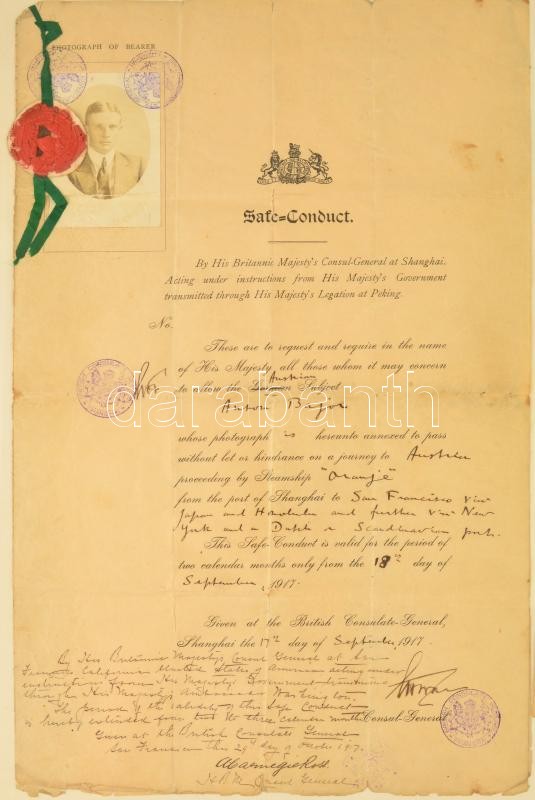 PHOTOGRAPH OF BEARER
Safe=Conduct.
By His Britannic Majesty's Consul-General at Shanghai.
Acting under instructions from His Majesty's Government
transmitted through His Majesty's Legation at Peking.
No.
These are to request and require in the name
of His Majesty all those whom it may concern
Austrian
to allow the German Subject
Anton
whose photograph is hereunto annexed to pass
without let or hindrance on a journey to Austria
proceeding by Steamship "Oranje"
from the port of Shanghai to San Francisco via
Japan and Honolulu and further via New
York and a Dutch or Scandinavian port.
This Safe-Conduct is valid for the period of
two calendar months only from the 18th day of
September, 1917.
Given at the British Consulate-General,
Shanghai the 17th day of September 1917.
By His Britannic Majesty's Consul General at San
Francisco California United States of America acting under
instructions from His Majesty's Government transmitted
through His Majesty's Ambassador Washington.
The period of the validity of this Safe Conduct
is hereby extended from two to three calendar months
Consul-General
Given at the British Consulate General
San Francisco this 29th day of October 1917.
A Carnegie Ross
H.B.M. Consul General
darabanth